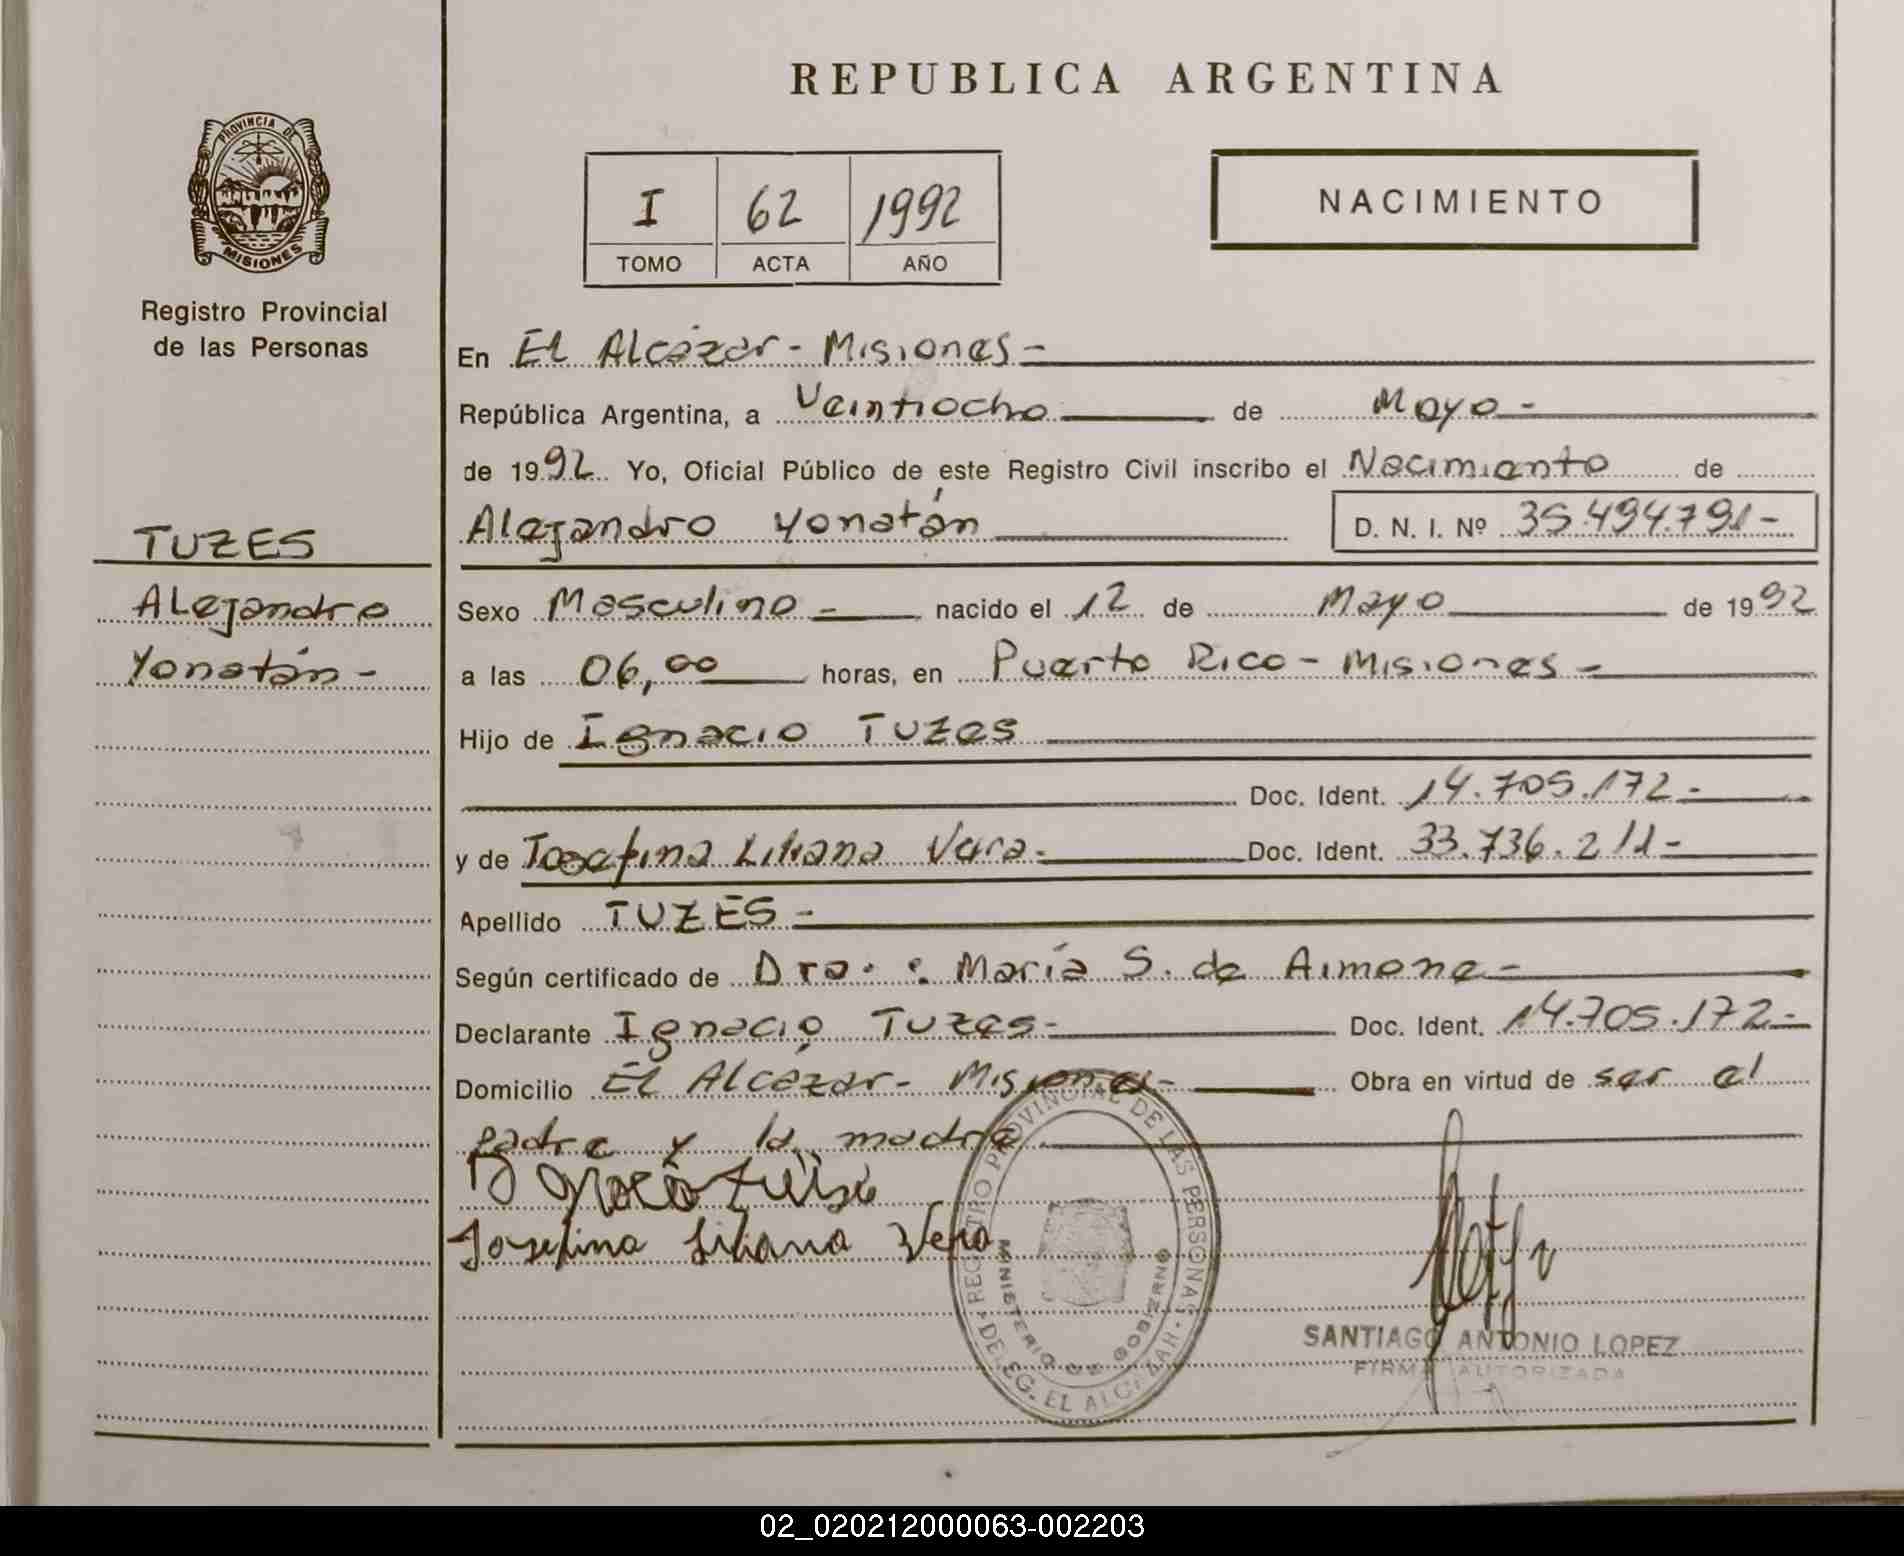 REPUBLICA ARGENTINA
PROVINCIA DE
MISIONES
Registro Provincial
de las Personas
I 62 1992
TOMO ACTA AÑO
NACIMIENTO
TUZES
Alejandro
Yonatán -
En El Alcázar - Misiones -
República Argentina, a Veintiocho de Mayo -
de 1992 Yo, Oficial Público de este Registro Civil inscribo el Nacimiento de
Alejandro Yonatán D. N. I. Nº 35.494.791 -
Sexo Masculino - nacido el 12 de Mayo de 1992
a las 06,00 horas, en Puerto Rico - Misiones -
Hijo de Ignacio Tuzes
Doc. Ident. 14.705.172 -
y de Josefina Liliana Vera - Doc. Ident. 33.736.211 -
Apellido TUZES -
Según certificado de Dra. : María S. de Aimone -
Declarante Ignacio Tuzes - Doc. Ident. 14.705.172 -
Domicilio El Alcázar - Misiones - Obra en virtud de ser el
padre y la madre
Josefina Liliana Vera
REGISTRO PROVINCIAL DE LAS PERSONAS
MINISTERIO DE GOBIERNO
DELEG. EL ALCAZAR
SANTIAGO ANTONIO LOPEZ
FIRMA AUTORIZADA
02_020212000063-002203